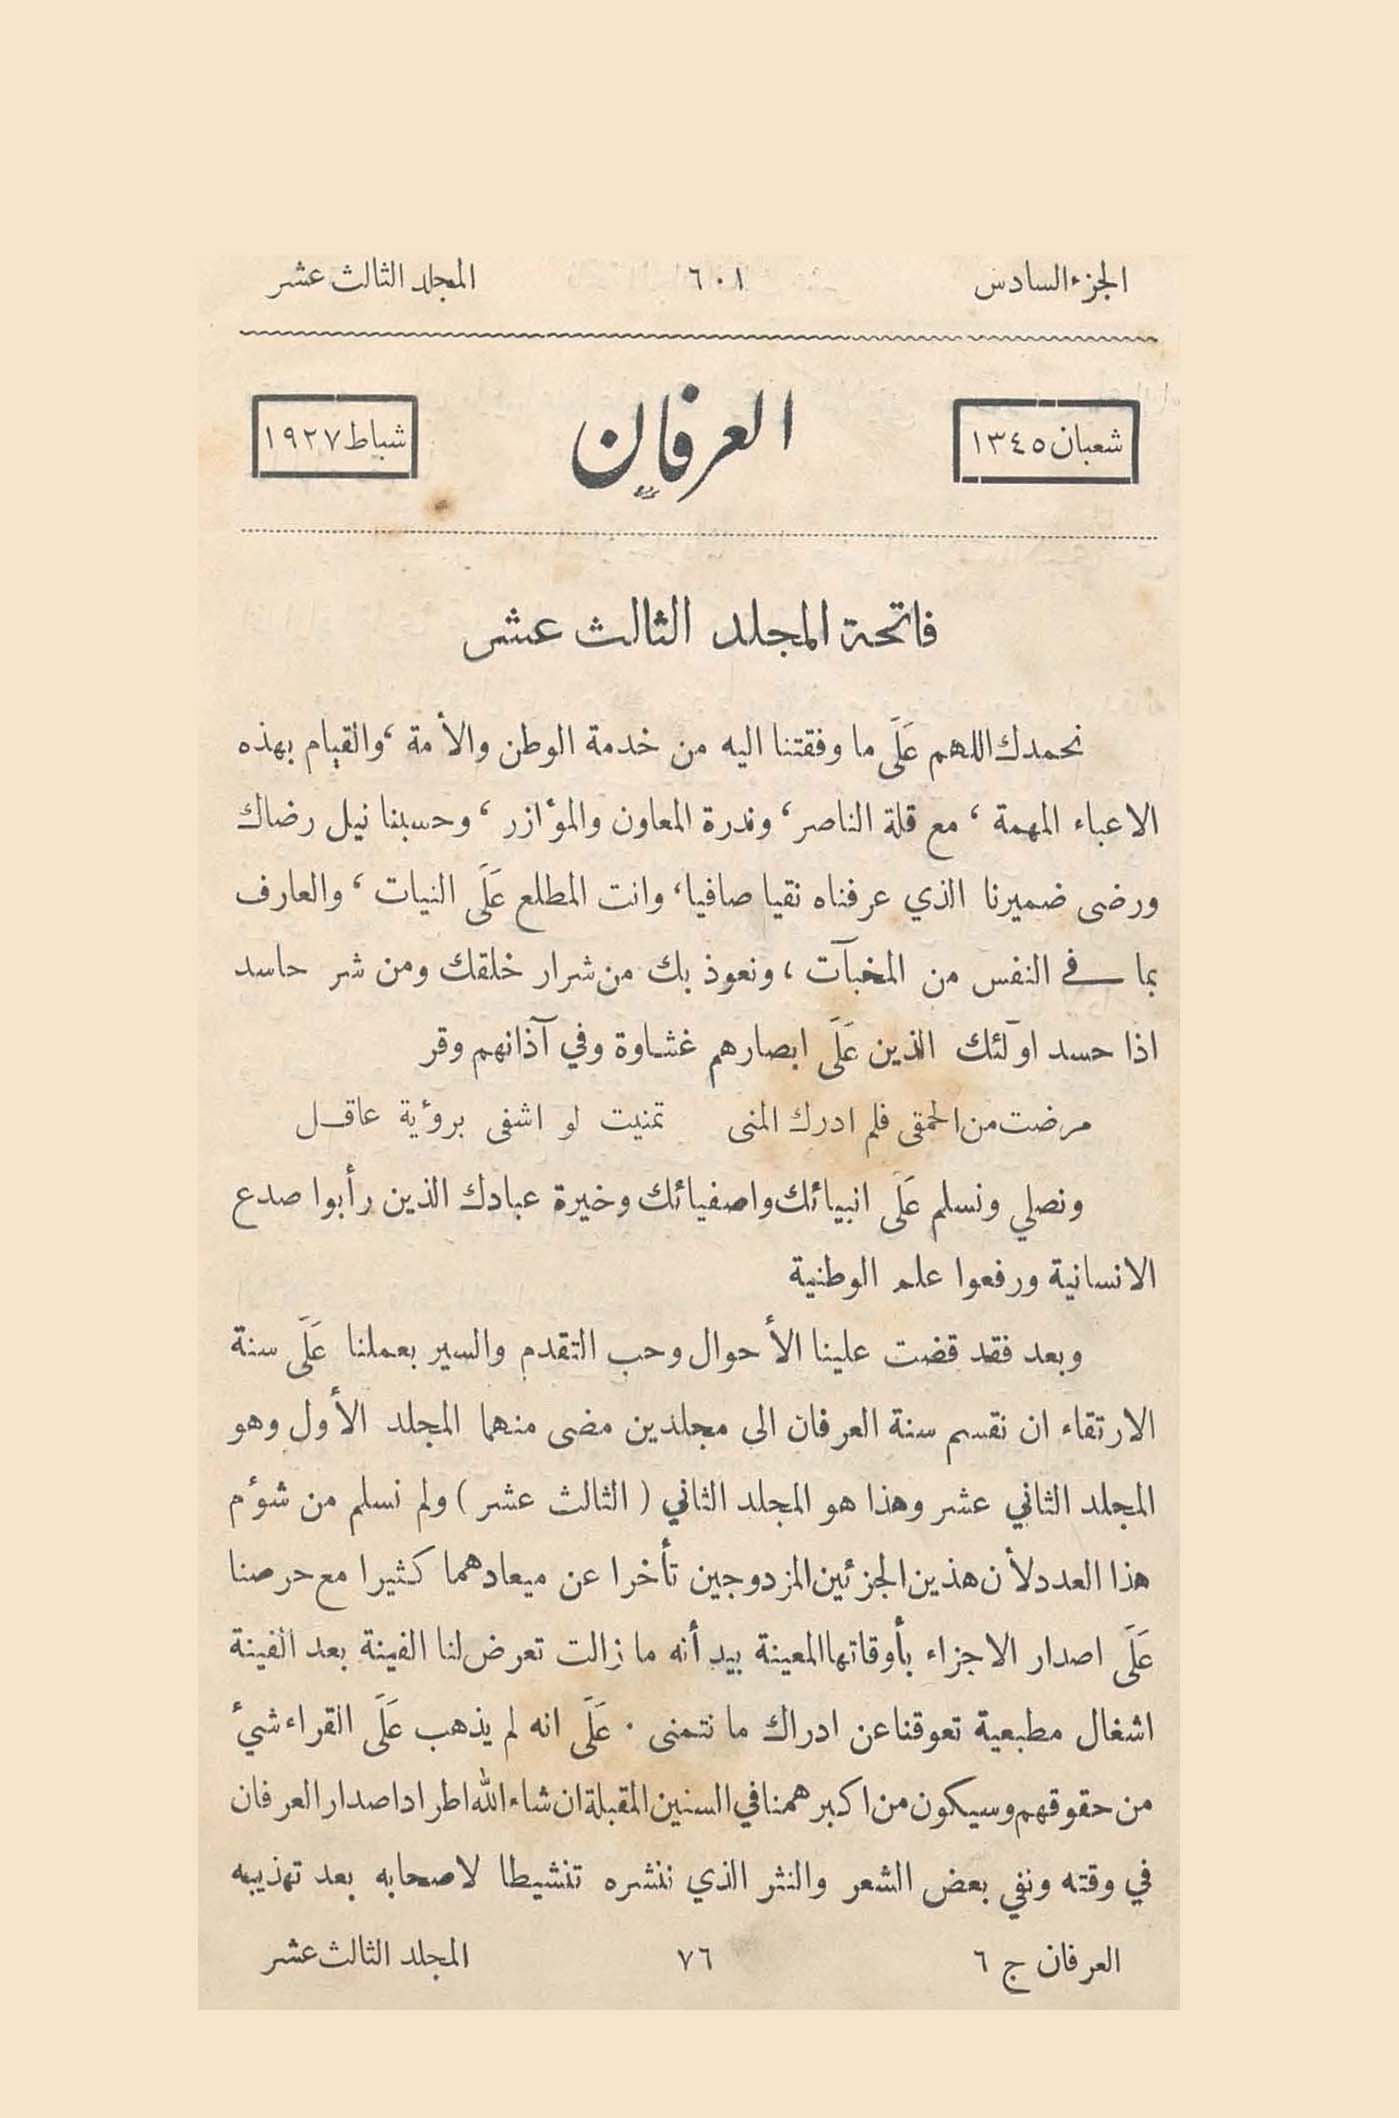 الجزء السادس ٦٠١ المجلد الثالث عشر
شعبان ١٣٤٥ العرفان شباط ١٩٢٧
فاتحة المجلد الثالث عشر
نحمدك اللهم عَلَى ما وفقتنا اليه من خدمة الوطن والأمة ، والقيام بهذه
الاعباء المهمة ، مع قلة الناصر ، وندرة المعاون والمؤازر ، وحسبنا نيل رضاك
ورضى ضميرنا الذي عرفناه نقيا صافيا ، وانت المطلع عَلَى النيات ، والعارف
بما في النفس من المخبآت ، ونعوذ بك من شرار خلقك ومن شر حاسد
اذا حسد اولئك الذين عَلَى ابصارهم غشاوة وفي آذانهم وقر
مرضت من الحمقى فلم ادرك المنى تمنيت لو اشفى برؤية عاقل
ونصلي ونسلم عَلَى انبيائك واصفيائك وخيرة عبادك الذين رأبوا صدع
الانسانية ورفعوا علم الوطنية
وبعد فقد قضت علينا الأحوال وحب التقدم والسير بعملنا عَلَى سنة
الارتقاء ان نقسم سنة العرفان الى مجلدين مضى منهما المجلد الأول وهو
المجلد الثاني عشر وهذا هو المجلد الثاني ( الثالث عشر ) ولم نسلم من شوءم
هذا العدد لأن هذين الجزئين المزدوجين تأخرا عن ميعادهما كثيرا مع حرصنا
عَلَى اصدار الاجزاء بأوقاتها المعينة بيد أنه ما زالت تعرض لنا الفينة بعد الفينة
اشغال مطبعية تعوقنا عن ادراك ما نتمنى . عَلَى انه لم يذهب عَلَى القراء شيء
من حقوقهم وسيكون من اكبر هممنا في السنين المقبلة ان شاء الله اطراد اصدار العرفان
في وقته ونفي بعض الشعر والنثر الذي ننشره تنشيطا لاصحابه بعد تهذيبه
العرفان ج ٦ ٧٦ المجلد الثالث عشر